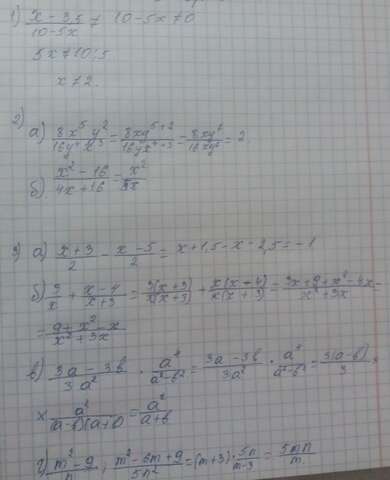 1) (x - 3,5)/(10-5x) ≠ 10-5x≠0
5x≠10:5
x≠2.
2)
а) 8x⁵y²/16y⁴x³ = 8xy⁵⁺²/16yx⁴⁺³ = 8xy⁷/16xy⁷ = 2
б) (x² - 16)/(4x+16) = x²/
3) а) (x+3)/2 - (x-5)/2 = x+1,5-x-2,5=-1
б) 3/x + (x-4)/(x+3) = 3(x+3)/x(x+3) + x(x+4)/x(x+3) = (3x+9+x²-4x)/(x²+3x) =
= (9+x²-x)/(x²+3x)
в) (3a-3b)/3a² · a⁴/(a²-b²) = (3a-3b)/3a² · a⁴/(a²-b²) = 3(a-b)/3 ×
× a²/(a-b)(a+b) = a²/(a+b)
г) (m²-9)/n : (m²-6m+9)/5n² = (m+3)·5n/(m-3) = 5mn/m